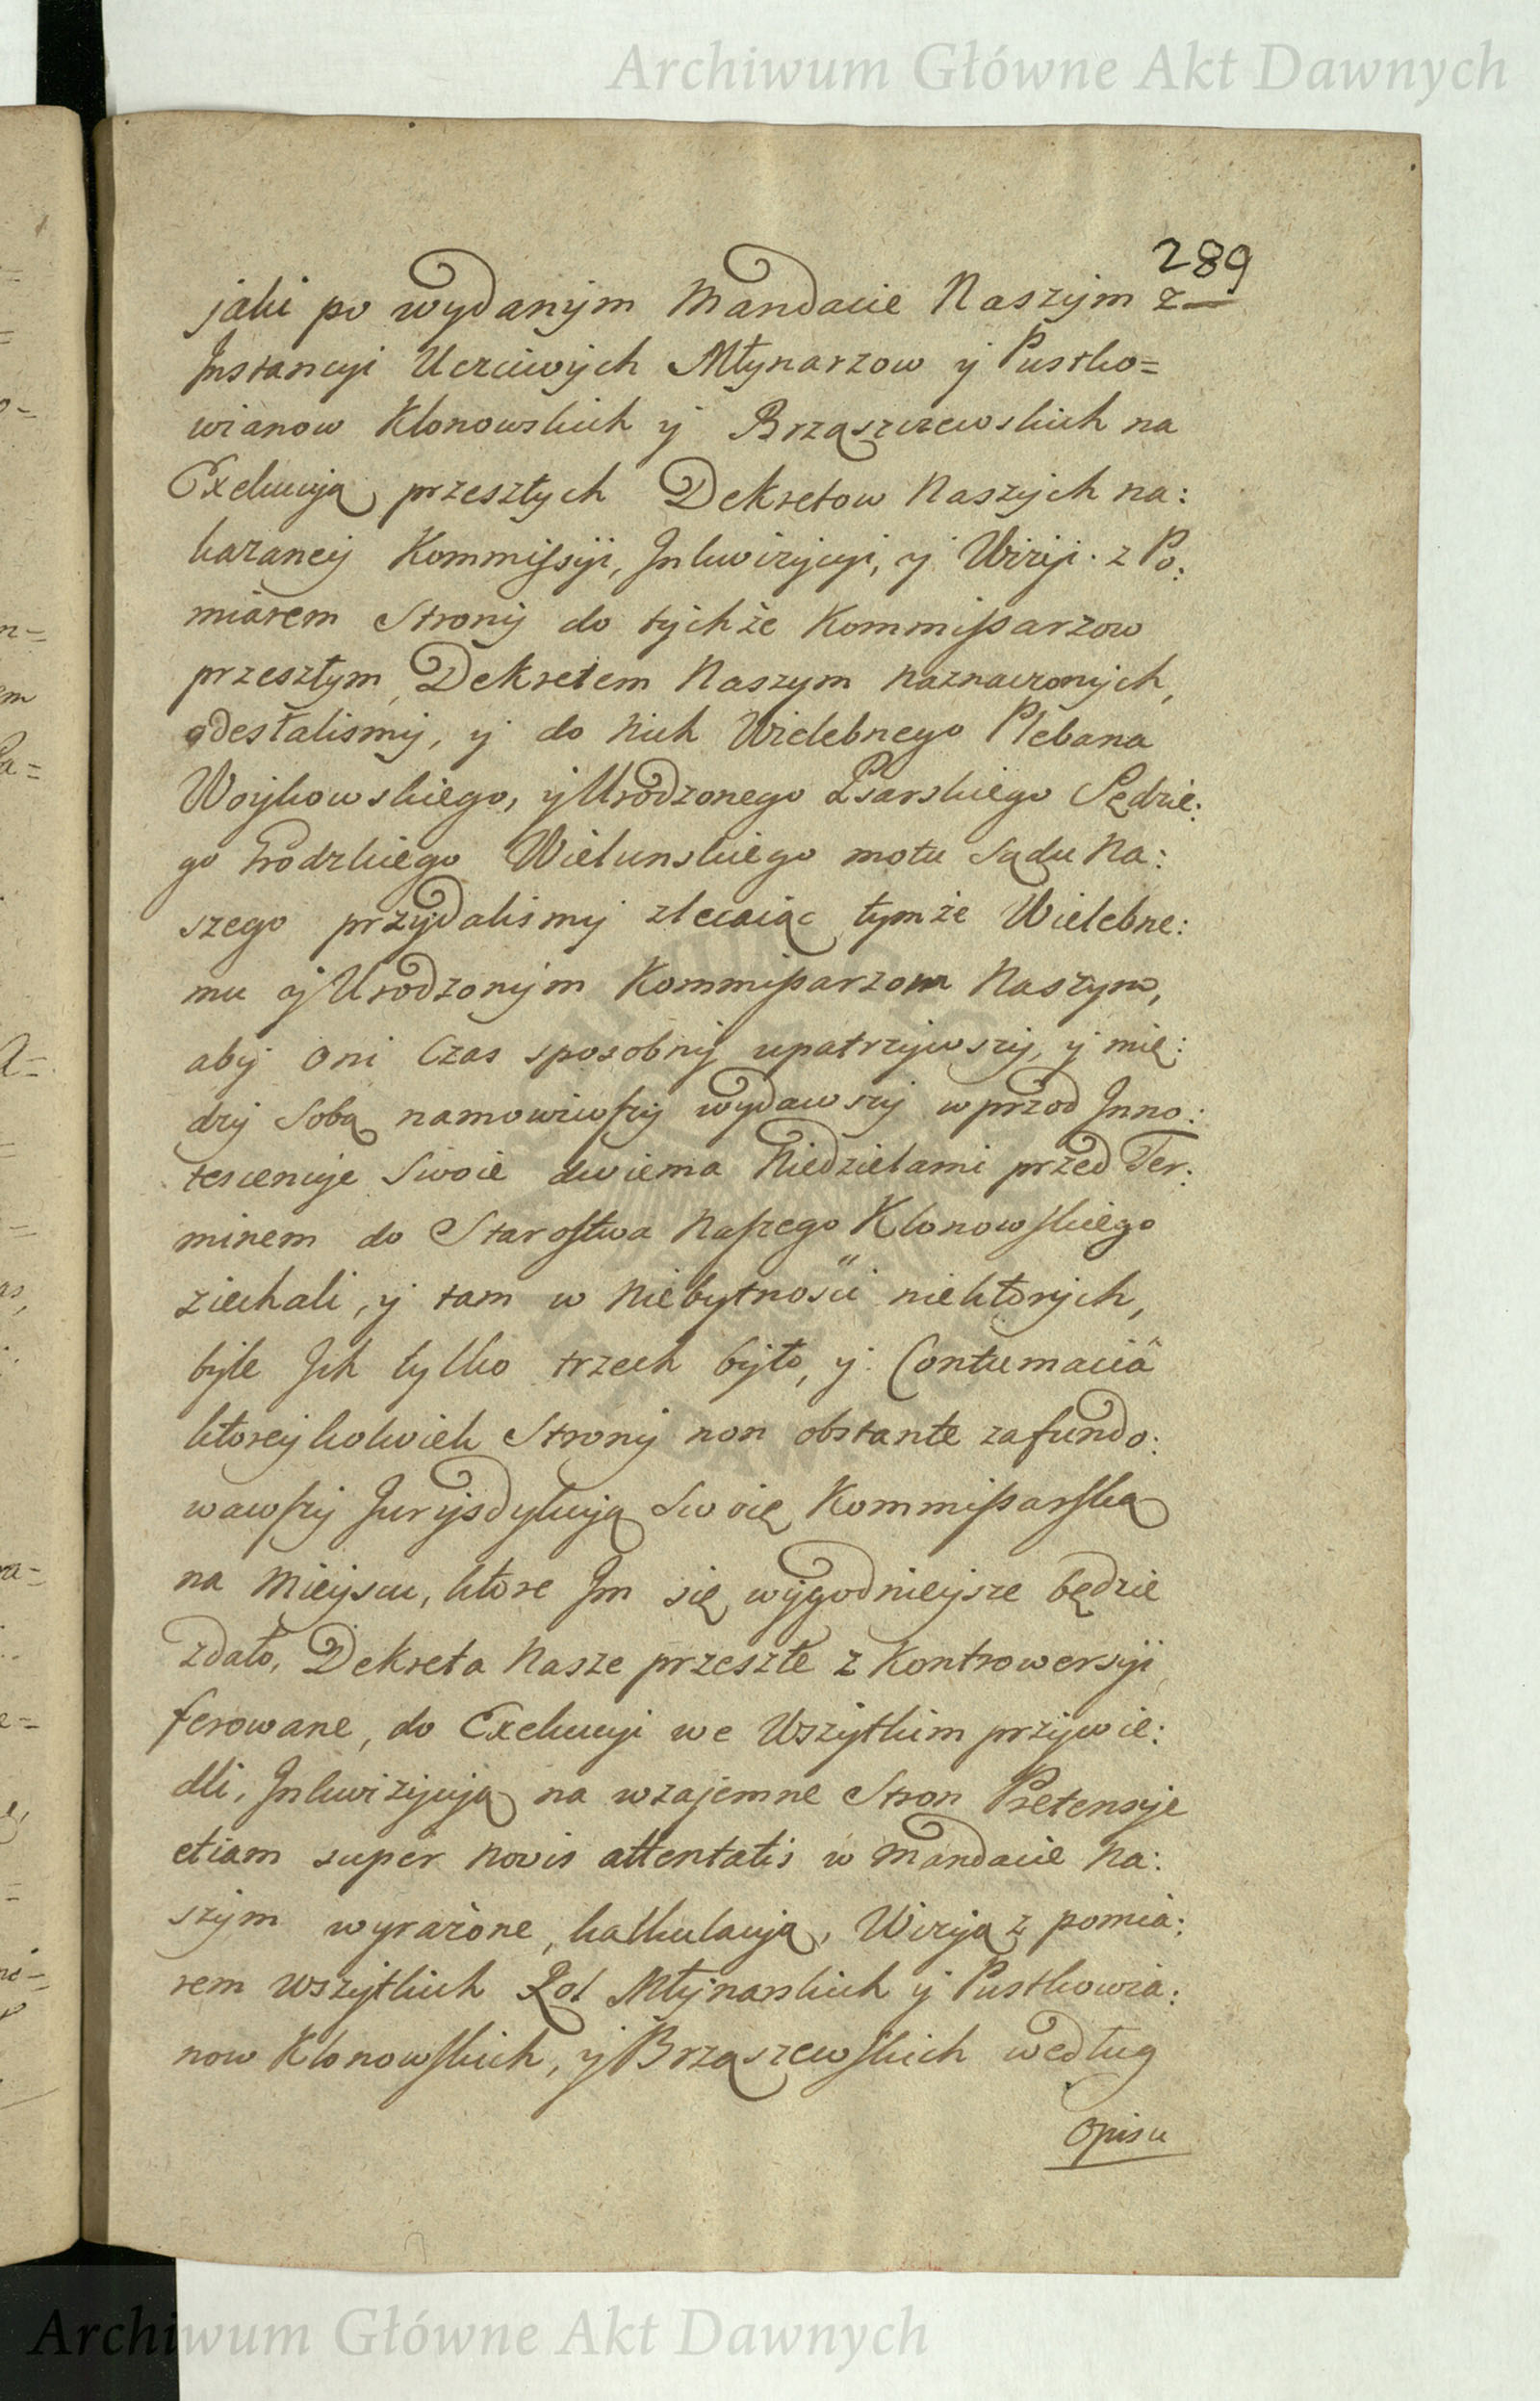 Archiwum Główne Akt Dawnych
289
jaki po wydanym Mandacie Naszym z
Instancyi Uczciwych Młynarzow y Pustko=
wianow Klonowskich y Brząszczewskich na
Exekucyją przeszłych Dekretow Naszych na:
kazaney Kommissyi, Inkwizycyi, y Wizyi z Po:
miarem Strony do tychże Kommissarzow
przeszłym Dekretem Naszym naznaczonych,
odesłalismy, y do Nich Wielebnego Plebana
Woykowskiego, y Urodzonego Psarskiego Sędzie:
go Grodzkiego Wielunskiego motu Sądu Na:
szego przydalismy zlecaiąc tymże Wielebne:
mu y Urodzonym Kommissarzom Naszym,
aby oni Czas sposobny upatrzywszy, y mię:
dzy Sobą namowiwszy wydawszy wprzod Inno:
tescencye Swoie dwiema Niedzielami przed Ter:
minem do Starostwa Naszego Klonowskiego
ziechali, y tam w Niebytności niektorych,
byle Ich tylko trzech było, y Contumaciâ
ktoreykolwiek Strony non obstante zafundo:
wawszy Jurysdykcyją Swoię Kommissarską
na Mieyscu, ktore Im się wygodnieysze będzie
zdało, Dekreta Nasze przeszłe z Kontrowersyi
ferowane, do Exekucyi we Wszytkim przywie:
dli, Inkwizycyją na wzajemne Stron Pretensye
etiam super novis attentatis w Mandacie Na:
szym wyrażone, kalkulacyją, Wizyją z pomia:
rem Wszytkich Rol Młynarskich y Pustkowia:
now Klonowskich, y Brząszewskich według
Opisu
Archiwum Główne Akt Dawnych